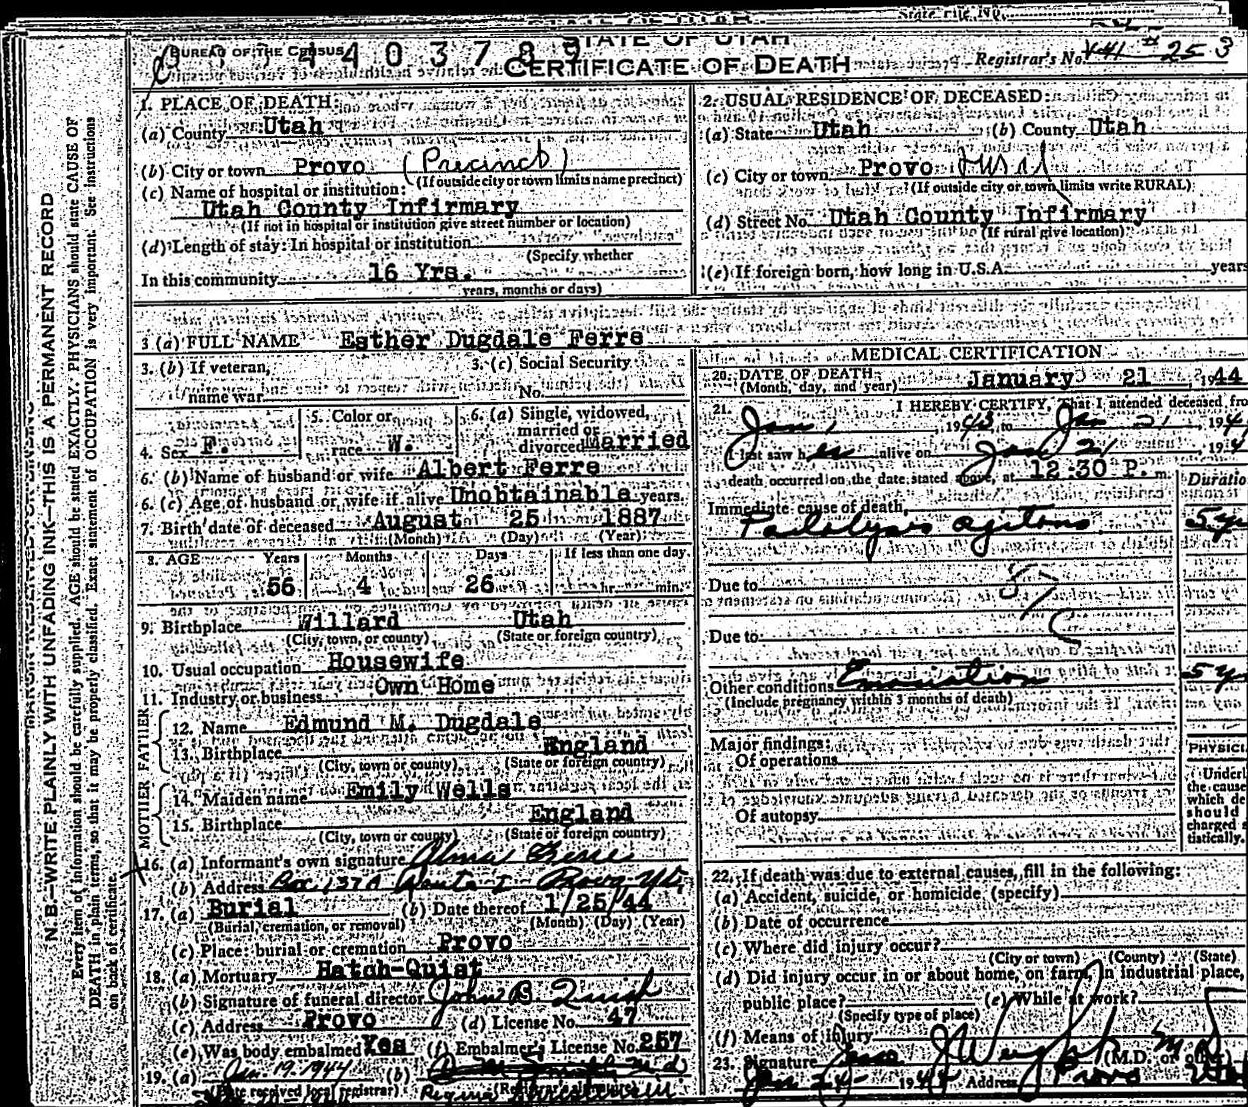 STATE OF UTAH
State File No.
BUREAU OF THE CENSUS
4 4 0 3 7 8 9
CERTIFICATE OF DEATH
Registrar's No. 253
1. PLACE OF DEATH:
(a) County Utah
(b) City or town Provo (Precinct)
(If outside city or town limits name precinct)
(c) Name of hospital or institution:
Utah County Infirmary
(If not in hospital or institution give street number or location)
(d) Length of stay: In hospital or institution
(Specify whether
In this community 16 Yrs.
years, months or days)
2. USUAL RESIDENCE OF DECEASED:
(a) State Utah (b) County Utah
(c) City or town Provo rural
(If outside city or town limits write RURAL)
(d) Street No. Utah County Infirmary
(If rural give location)
(e) If foreign born, how long in U.S.A. years
3 (a) FULL NAME Esther Dugdale Ferre
3. (b) If veteran,
name war
3. (c) Social Security
No.
4. Sex F.
5. Color or
race W.
6. (a) Single, widowed,
married or
divorced Married
6. (b) Name of husband or wife Albert Ferre
6. (c) Age of husband or wife if alive Unobtainable years
7. Birth date of deceased August 25 1887
(Month) (Day) (Year)
8. AGE Years Months Days If less than one day
56 4 26 hr. min.
9. Birthplace Willard Utah
(City, town, or county) (State or foreign country)
10. Usual occupation Housewife
11. Industry or business Own Home
FATHER
12. Name Edmund M. Dugdale
13. Birthplace England
(City, town, or county) (State or foreign country)
MOTHER
14. Maiden name Emily Wells
15. Birthplace England
(City, town or county) (State or foreign country)
16. (a) Informant's own signature Alma Ferre
(b) Address Box 137A Route I Provo Ut.
17. (a) Burial (b) Date thereof 1/25/44
(Burial, cremation, or removal) (Month) (Day) (Year)
(c) Place: burial or cremation Provo
18. (a) Mortuary Hatch-Quist
(b) Signature of funeral director John B Quist
(c) Address Provo (d) License No. 47
(e) Was body embalmed Yes (f) Embalmer's License No. 257
19. (a) Jan. 19. 1944 (b)
(Date received local registrar) (Registrar's signature)
MEDICAL CERTIFICATION
20. DATE OF DEATH: January 21, 1944
(Month, day, and year)
21. I HEREBY CERTIFY, That I attended deceased fro
Jan 1, 1943, to Jan 21, 194
I last saw her alive on Jan 21, 194
death occurred on the date stated above, at 12:30 P. m
Duratio
Immediate cause of death,
Paralysis agitans 5 y
Due to
Due to
Other conditions Emaciation 5 y
(Include pregnancy within 3 months of death)
Major findings:
Of operations
Of autopsy
PHYSICI
Underl
the cause
which de
should
charged s
tistically.
22. If death was due to external causes, fill in the following:
(a) Accident, suicide, or homicide (specify)
(b) Date of occurrence
(c) Where did injury occur?
(City or town) (County) (State)
(d) Did injury occur in or about home, on farm, in industrial place,
public place? (e) While at work?
(Specify type of place)
(f) Means of injury
23. Signature (M.D. or other)
Jan 24 1944 Address Provo Utah
N. B.—WRITE PLAINLY WITH UNFADING INK—THIS IS A PERMANENT RECORD
Every item of information should be carefully supplied. AGE should be stated EXACTLY. PHYSICIANS should state CAUSE OF
DEATH in plain terms, so that it may be properly classified. Exact statement of OCCUPATION is very important. See instructions
on back of certificate.